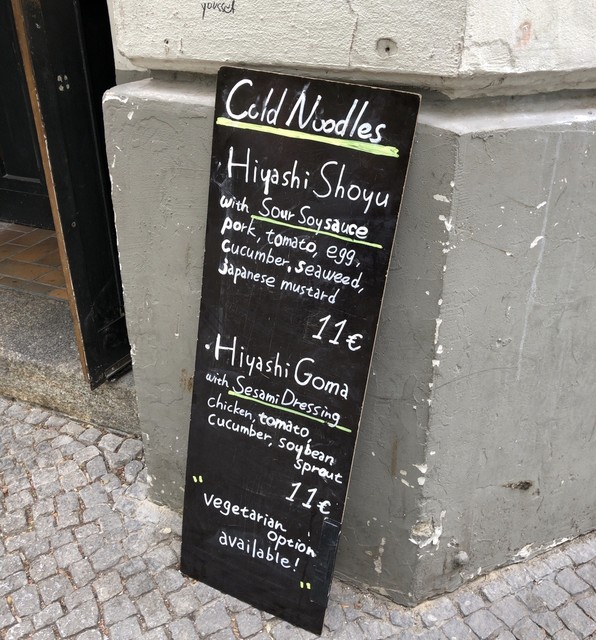 yousset
Cold Noodles
· Hiyashi Shoyu
with Sour Soysauce
pork, tomato, egg,
cucumber, seaweed,
Japanese mustard
11€
· Hiyashi Goma
with Sesami Dressing
chicken, tomato,
cucumber, soybean
sprout
11€
"
vegetarian
option
available!
"